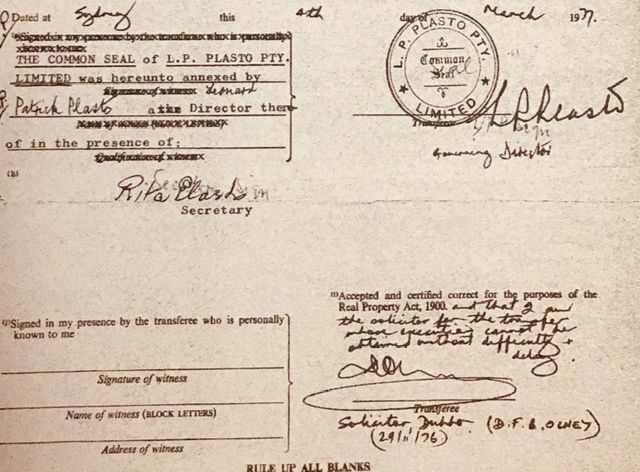 Dated at Sydney this 4th day of March 1977.
THE COMMON SEAL of L.P. PLASTO PTY.
LIMITED was hereunto annexed by
Leonard
Patrick Plasto a Director there
of in the presence of:
L. P. PLASTO PTY. LIMITED
Common Seal
Transferor
L P Plasto
Governing Director
(h)
Rita Plasto
Secretary
Signed in my presence by the transferee who is personally
known to me
Signature of witness
Name of witness (BLOCK LETTERS)
Address of witness
Accepted and certified correct for the purposes of the
Real Property Act, 1900. and that I am
the solicitor for the transferee
whose execution cannot be
obtained without difficulty &
delay
Transferee
Solicitor, Dubbo (D. F. B. OLNEY)
(29/11/76)
RULE UP ALL BLANKS